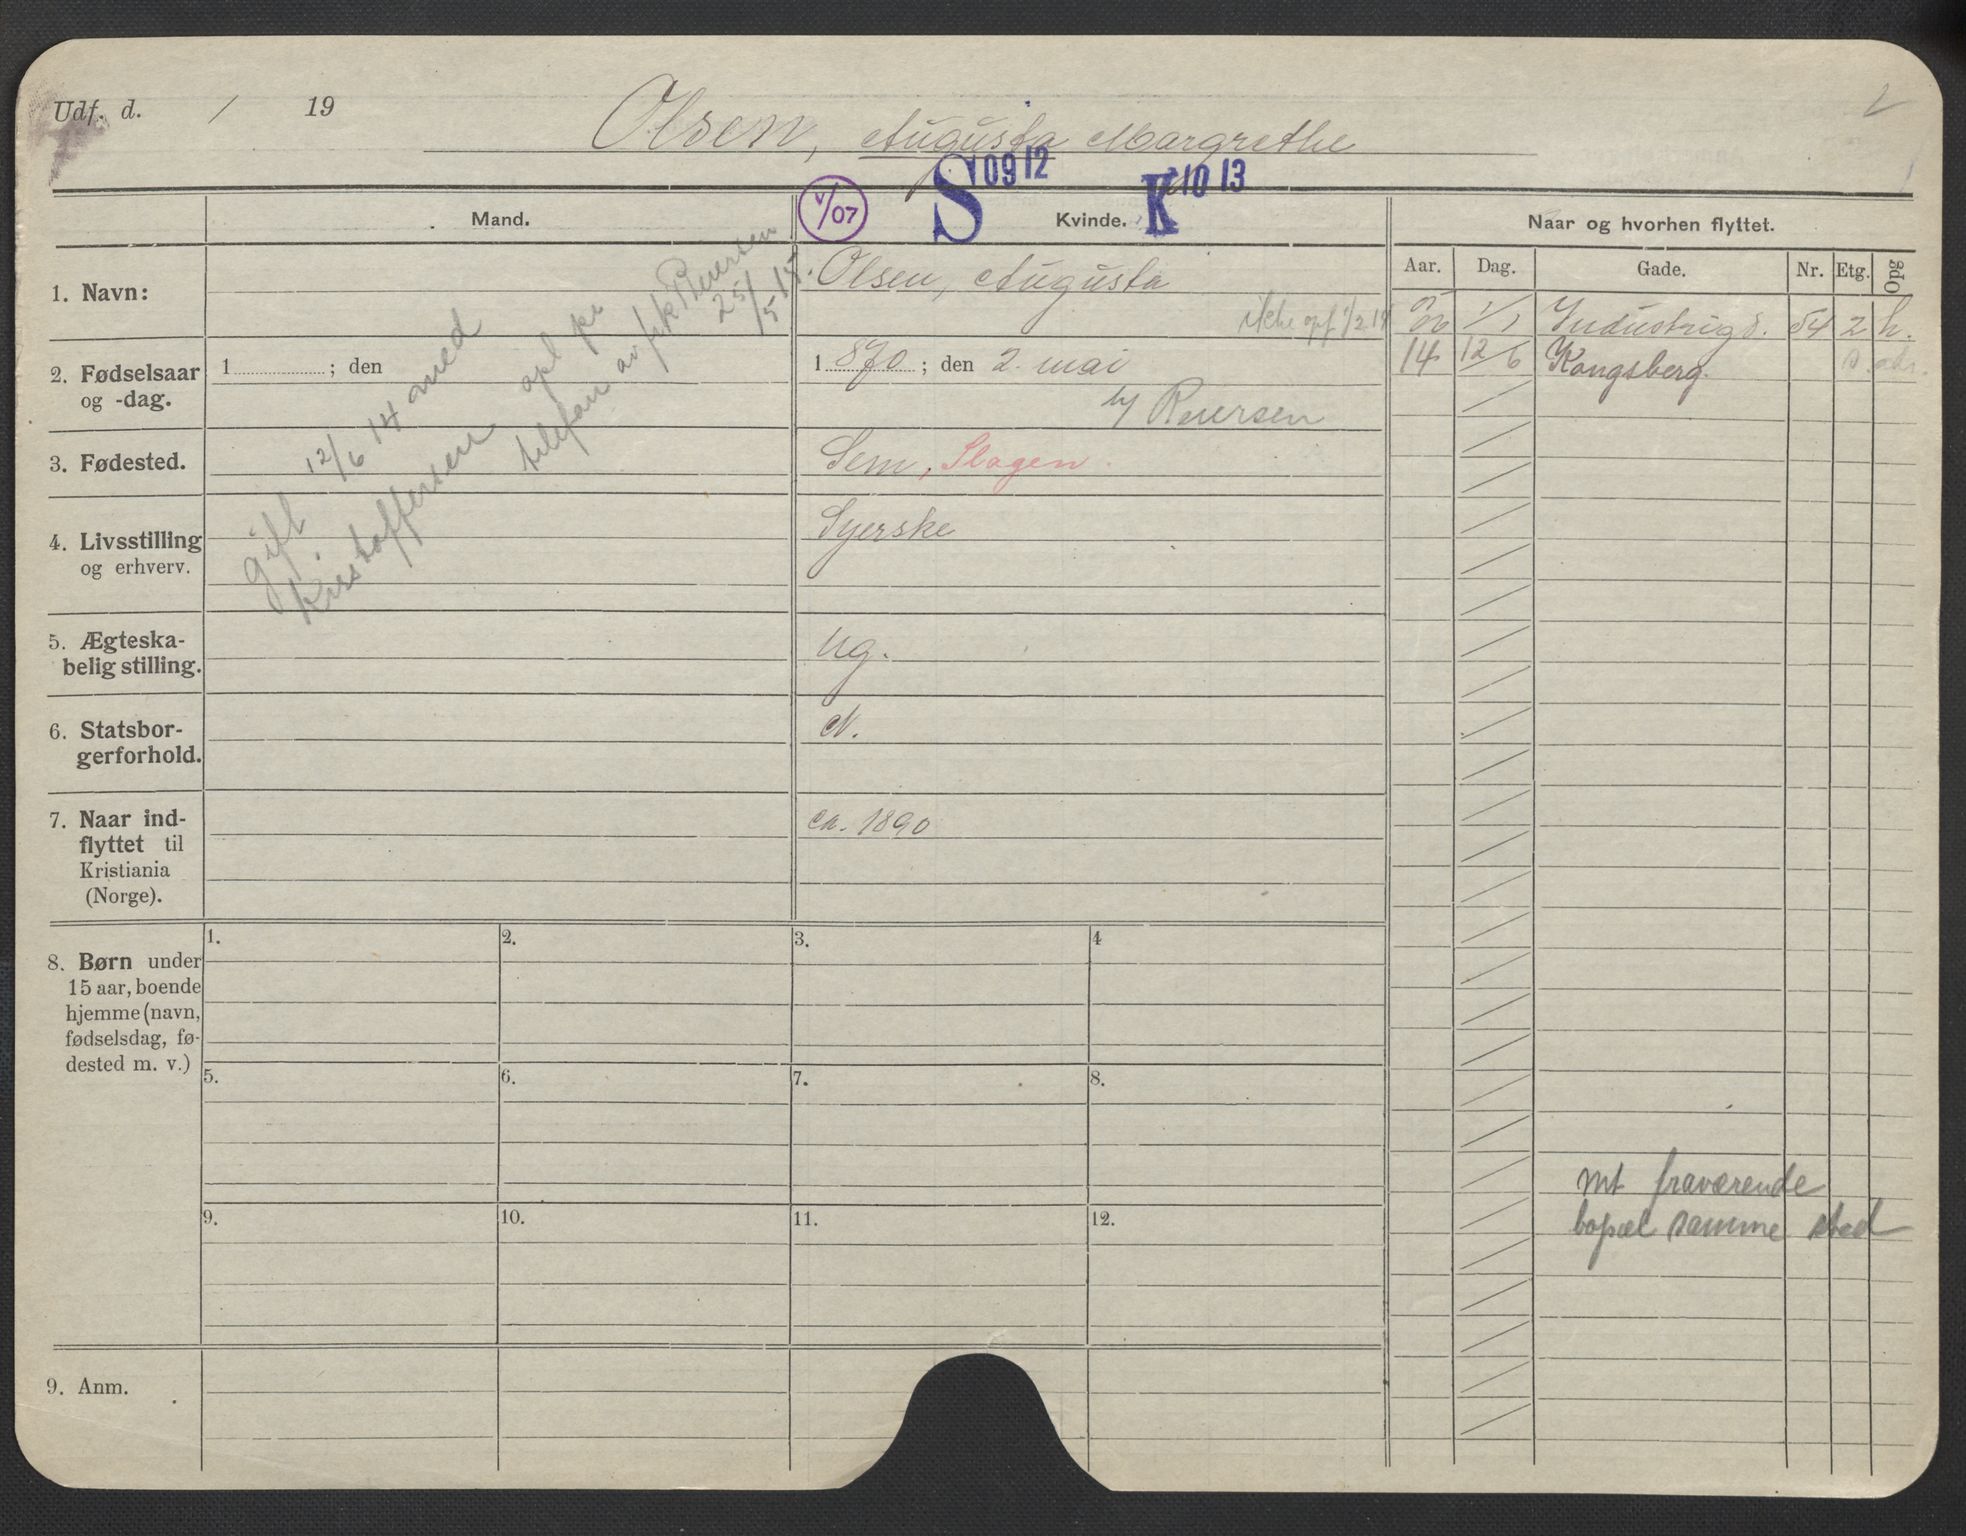 Udf. d. / 19
Olsen, Augusta Margrethe
V/07
S 09 12
K 10 13
Mand.
Kvinde.
Naar og hvorhen flyttet.
Aar. Dag. Gade. Nr. Etg. Opg
1. Navn:
Olsen, Augusta
ikke opf 1/2 14
06 1/1 Industrig d. 54 2 h.
14 12/6 Kongsberg.
2. Fødselsaar
og -dag.
1 ; den
1870; den 2. mai
Reiersen
3. Fødested.
Sem, Slagen.
gift 12/6 14 med
Kristoffersen opl pr
telefon av frk Reiersen
25/5 15
4. Livsstilling
og erhverv.
Syerske
5. Ægteska-
belig stilling.
ug.
6. Statsbor-
gerforhold.
N.
7. Naar ind-
flyttet til
Kristiania
(Norge).
ca. 1890
8. Børn under
15 aar, boende
hjemme (navn,
fødselsdag, fø-
dested m. v.)
1. 2. 3. 4
5. 6. 7. 8.
9. 10. 11. 12.
mt fraværende
bopæl samme sted
9. Anm.